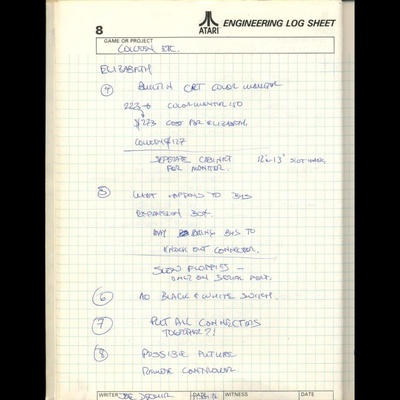 8
ATARI
ENGINEERING LOG SHEET
GAME OR PROJECT
COLLEEN ETC.
ELIZABETH
④ BUILT IN CRT COLOR MONITOR
223 → COLOR MONITOR 150
$273 COST FOR ELIZABETH
COLLEEN $127
SEPERATE CABINET 12" - 13"
FOR MONITOR.
⑤ WHAT HAPPENS TO BUS
EXPANSION BOX.
MAY BRING BUS TO
KNOCK OUT CONNECTOR.
SLOW FLOPPIES -
ONLY ON SERIAL PORT.
⑥ NO BLACK & WHITE SWITCH.
⑦ PUT ALL CONNECTORS
TOGETHER?!
⑧ POSSIBLE FUTURE
REMOTE CONTROLLER
WRITER JOE DECUIR DATE WITNESS DATE